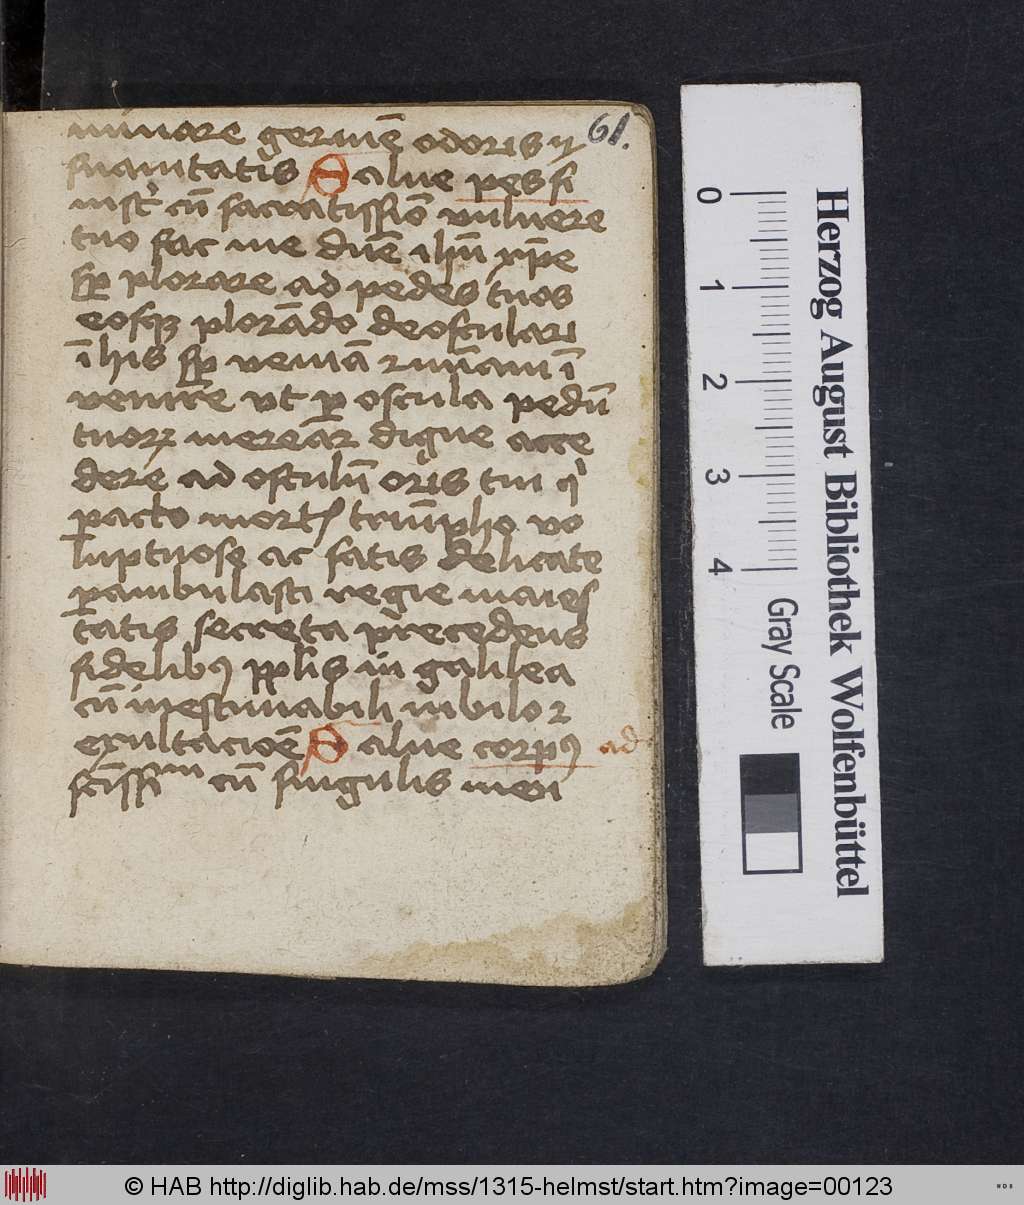 minare germē odoris ⁊
suauitatis Salue pes si
nist' cū sacratissīo vulnere
tuo fac me dn̄e ihū xp̄e
sp̄ plorare ad pedes tuos
eosqȝ plorādo deosculari
ī his sp̄ ueniā ⁊ mīam ī
venire vt ꝑ oscula pedū
tuorꝝ mereār digne acce
dere ad osculū oris tui qͥ
pacto mortꝭ triūpho vo
luptuose ac satis delicate
ꝑambulasti regie maies
tatis secreta precedens
fidelibꝰ pplis in galilea
cū inestimabili iubilo ⁊
exultacioē Salue corpꝰ ad
sctīssīm cū singulis meī
61.
0 1 2 3 4
Gray Scale
Herzog August Bibliothek Wolfenbüttel
© HAB http://diglib.hab.de/mss/1315-helmst/start.htm?image=00123
HAB